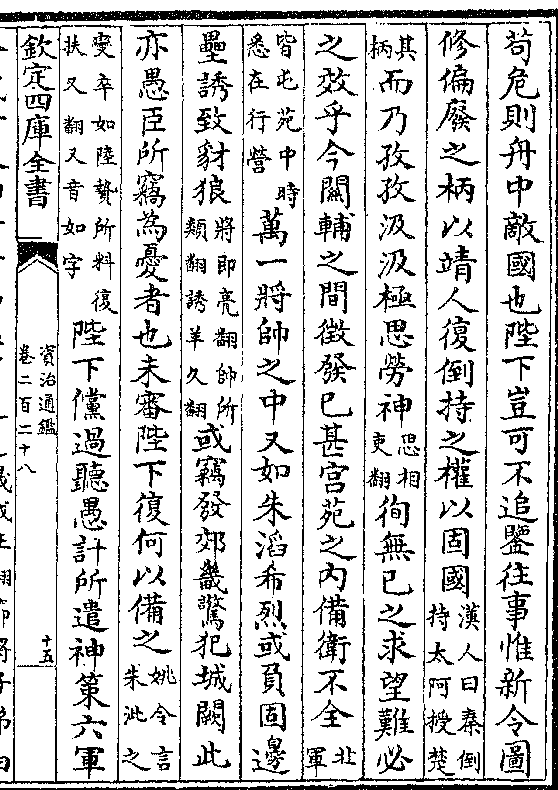 苟危則舟中敵國也陛下豈可不追鑒往事惟新令圖
修偏廢之柄以靖人復倒持之權以固國漢人曰秦倒持太阿授楚
其柄而乃孜孜汲汲極思勞神思相吏翻徇無已之求望難必
之效乎今關輔之間徵發已甚宫苑之内備衛不全北軍
皆屯苑中時悉在行營萬一將帥之中又如朱滔希烈或負固邊
壘誘致豺狼將即亮翻帥所類翻誘羊久翻或竊發郊畿驚犯城闕此
亦愚臣所竊為憂者也未審陛下復何以備之姚令言朱泚之
變卒如陸贄所料復扶又翻又音如字陛下儻過聽愚計所遣神策六軍
欽定四庫全書
資治通鑑
卷二百二十八
十五